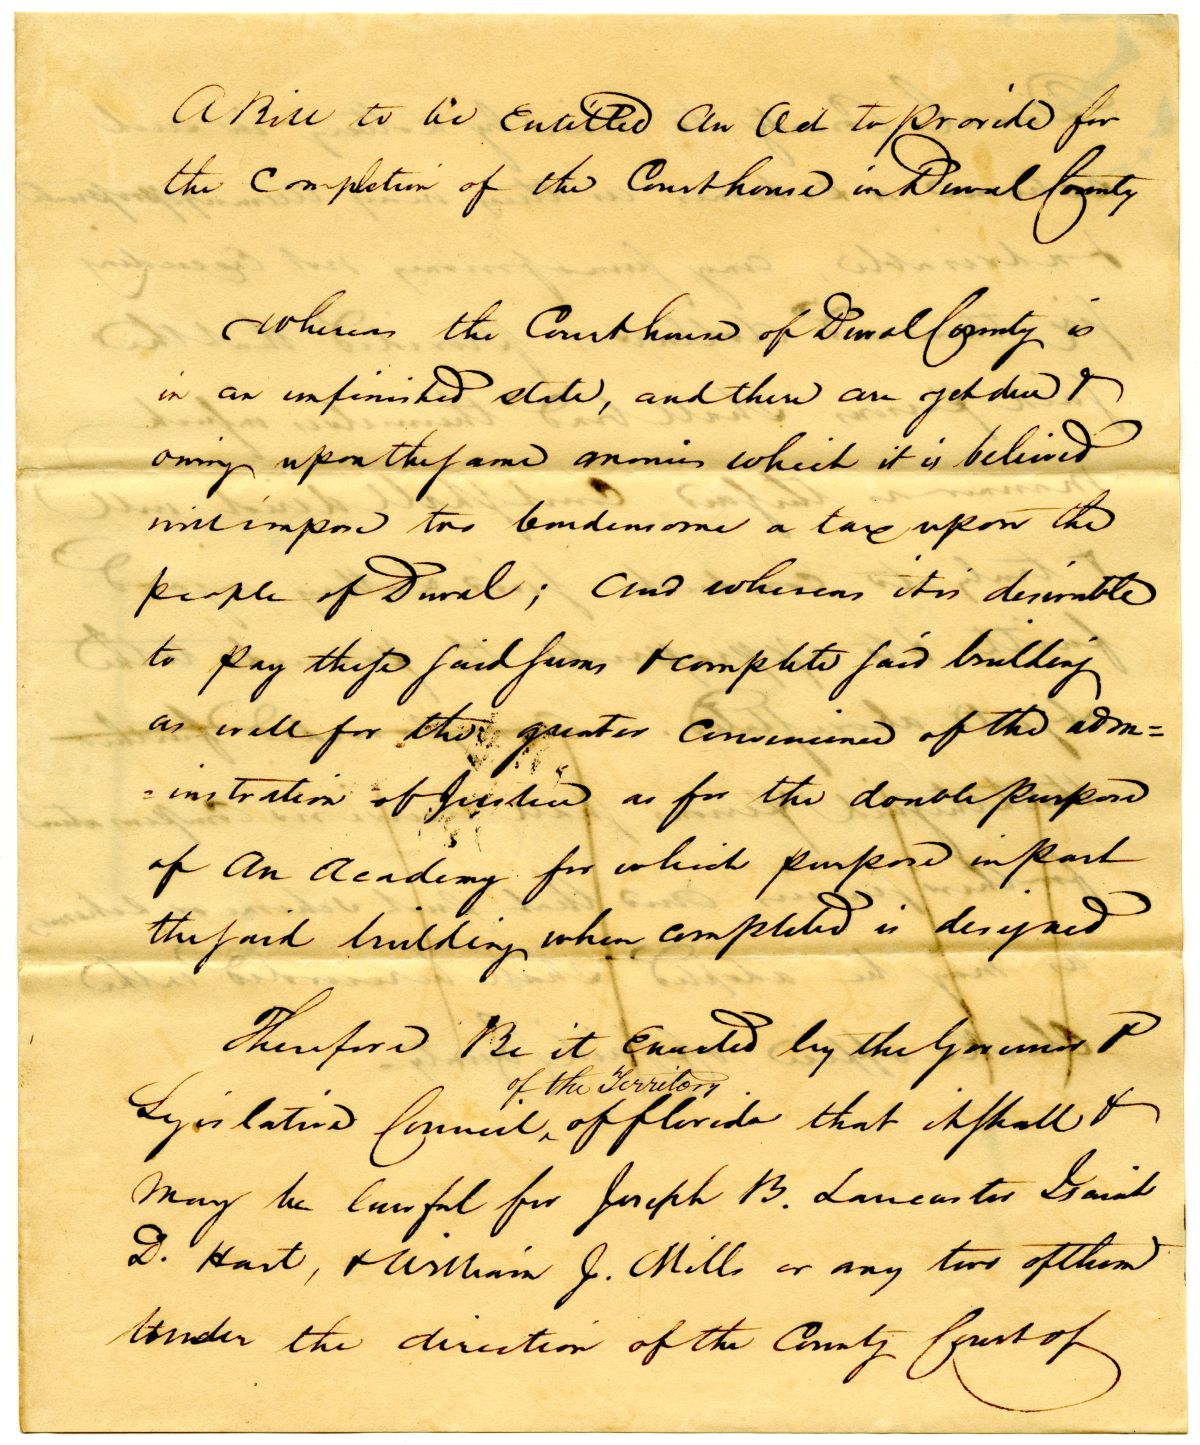 A Bill to be Entitled An Act to provide for
the completion of the Courthouse in Duval County
Whereas the Courthouse of Duval County is
in an unfinished state, and there are yet due &
owing upon the same monies which it is believed
will impose too burdensome a tax upon the
people of Duval; and whereas it is desirable
to pay these said sums & complete said building
as well for the greater convenience of the adm=
=instration of Justice as for the double purpose
of An Academy for which purpose in part
the said building when completed is designed
Therefore Be it Enacted by the Governor &
of the Territory
Legislative Council, of Florida that it shall &
may be lawful for Joseph B. Lancaster Isaiah
D. Hart, & William J. Mills or any two of them
Under the direction of the County Court of